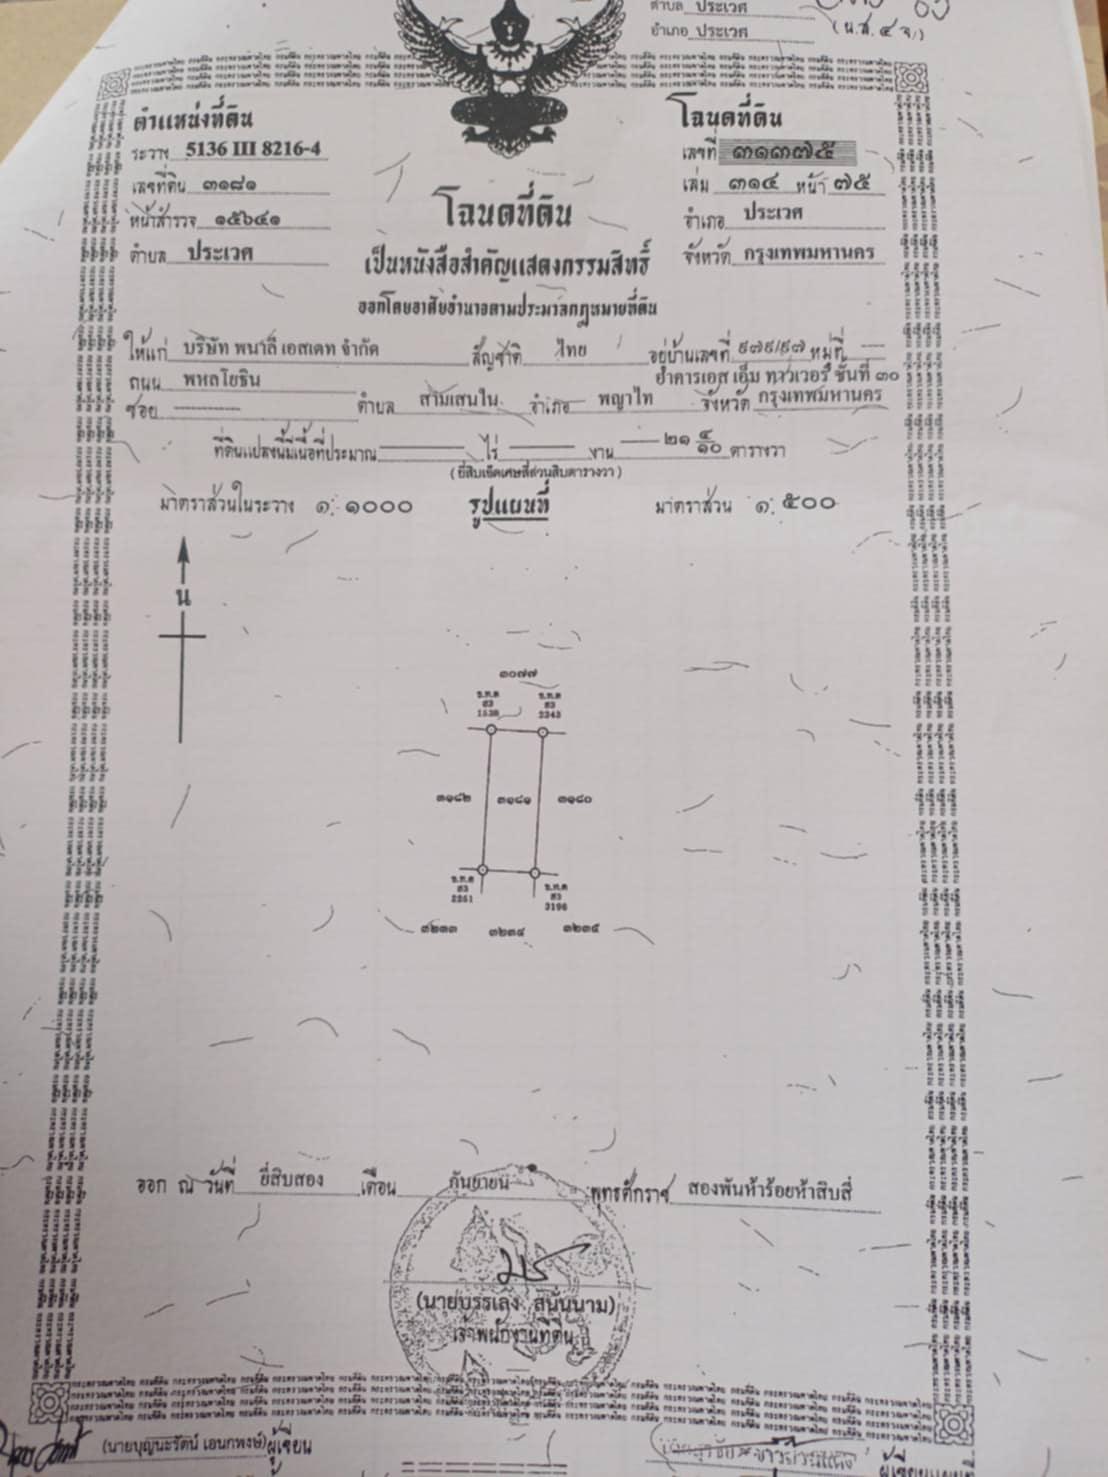 ตำบล ประเวศ
อำเภอ ประเวศ
(น.ส. ๔ จ.)
ตำแหน่งที่ดิน
ระวาง 5136 III 8216-4
เลขที่ดิน ๓๑๘๑
หน้าสำรวจ ๑๕๖๔๑
ตำบล ประเวศ
โฉนดที่ดิน
เลขที่ ๓๑๓๗๕
เล่ม ๓๑๔ หน้า ๗๕
อำเภอ ประเวศ
จังหวัด กรุงเทพมหานคร
โฉนดที่ดิน
เป็นหนังสือสำคัญแสดงกรรมสิทธิ์
ออกโดยอาศัยอำนาจตามประมวลกฎหมายที่ดิน
ให้แก่ บริษัท พนาลี เอสเตท จำกัด สัญชาติ ไทย อยู่บ้านเลขที่ ๙๗๙/๙๗ หมู่ที่
อาคารเอส เอ็ม ทาวเวอร์ ชั้นที่ ๓๐
ถนน พหลโยธิน
ซอย ตำบล สามเสนใน อำเภอ พญาไท จังหวัด กรุงเทพมหานคร
ที่ดินแปลงนี้มีเนื้อที่ประมาณ ไร่ งาน ๒๑ ๔/๑๐ ตารางวา
(ยี่สิบเอ็ดเศษสี่ส่วนสิบตารางวา)
มาตราส่วนในระวาง ๑:๑๐๐๐ รูปแผนที่ มาตราส่วน ๑:๕๐๐
น
๓๐๗๗
ข.ท.ด ข.ท.ด
ส3 ส3
1538 2343
๓๑๘๒ ๓๑๘๑ ๓๑๘๐
ข.ท.ด ข.ท.ด
ส3 ส3
2251 3196
๓๒๓๓ ๓๒๓๔ ๓๒๓๕
ออก ณ วันที่ ยี่สิบสอง เดือน กันยายน พุทธศักราช สองพันห้าร้อยห้าสิบสี่
(นายบรรเลง สนั่นนาม)
เจ้าพนักงานที่ดิน
(นายบุญนะรัตน์ เอนกพงษ์) ผู้เขียน